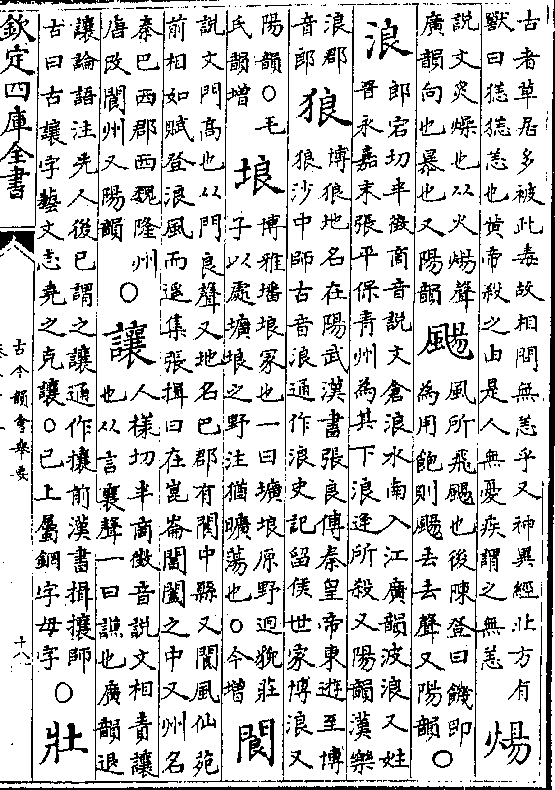 古者草居多被此毒故相問無恙乎又神異經北方有
獸曰㺊㺊恙也黄帝殺之由是人無憂疾謂之無恙
煬
說文炙燥也从火昜聲
廣韻向也暴也又陽韻
颺
風所飛颺也後陳登曰饑即
為用飽則颺去去聲又陽韻○
浪
郎宕切半徵商音說文滄浪水南入江廣韻波浪又姓
晉永嘉末張平保青州為其下浪逢所殺又陽韻漢樂
浪郡
音郎
狼
博狼地名在陽武漢書張良傳秦皇帝東遊至博
狼沙中師古音浪通作浪史記留侯世家博浪又
陽韻○毛
氏韻增
埌
博雅墦埌冢也一曰壙埌原野迥貌莊
子以處壙埌之野注猶曠蕩也○今增
閬
說文門高也从門良聲又地名巴郡有閬中縣又閬風仙苑
前相如賦登浪風而遥集張揖曰在崑崙閶闔之中又州名
秦巴西郡西魏隆州
唐改閬州又陽韻○
讓
人様切半商徵音說文相責讓
也从言襄聲一曰譙也廣韻退
讓論語注先人後已謂之讓通作攘前漢書揖攘師
古曰古讓字藝文志堯之克讓○已上屬鋼字母字○
壯
欽定四庫全書
古今韻會舉要
十八